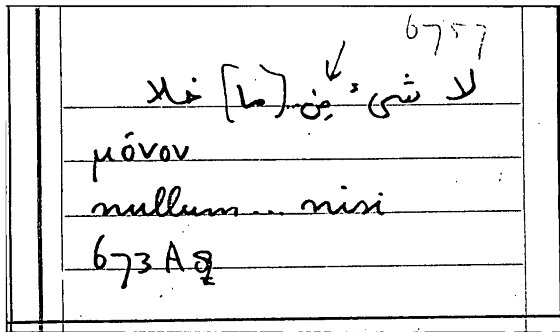 6757
لا شىء مِن [ما] خلا
μόνον
nullum... nisi
673 A